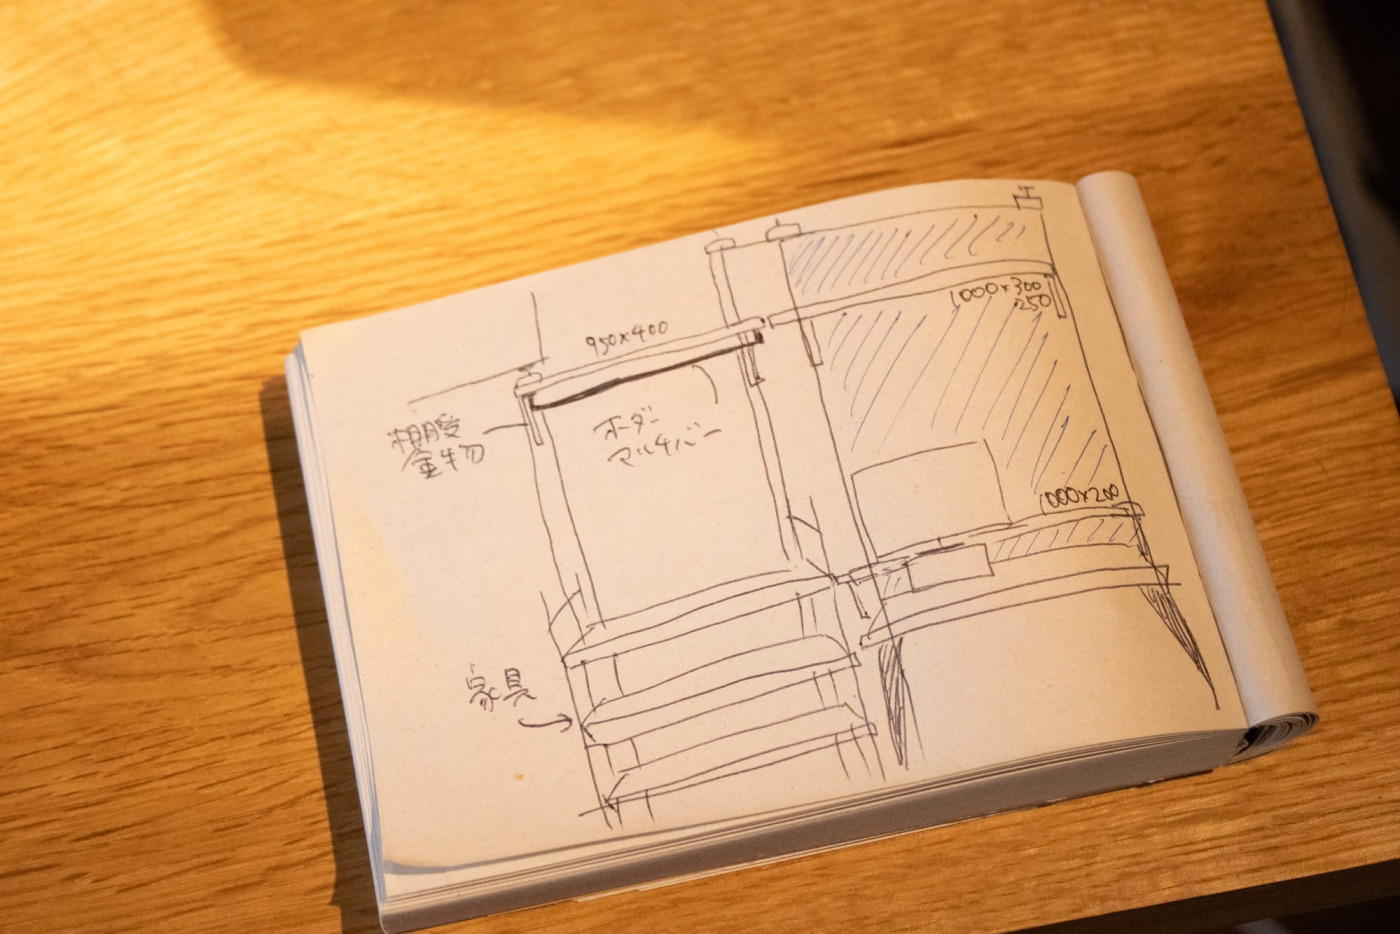 1000×300
250
950×400
棚受
金物
ホダー
マルチバー
1000×200
家具